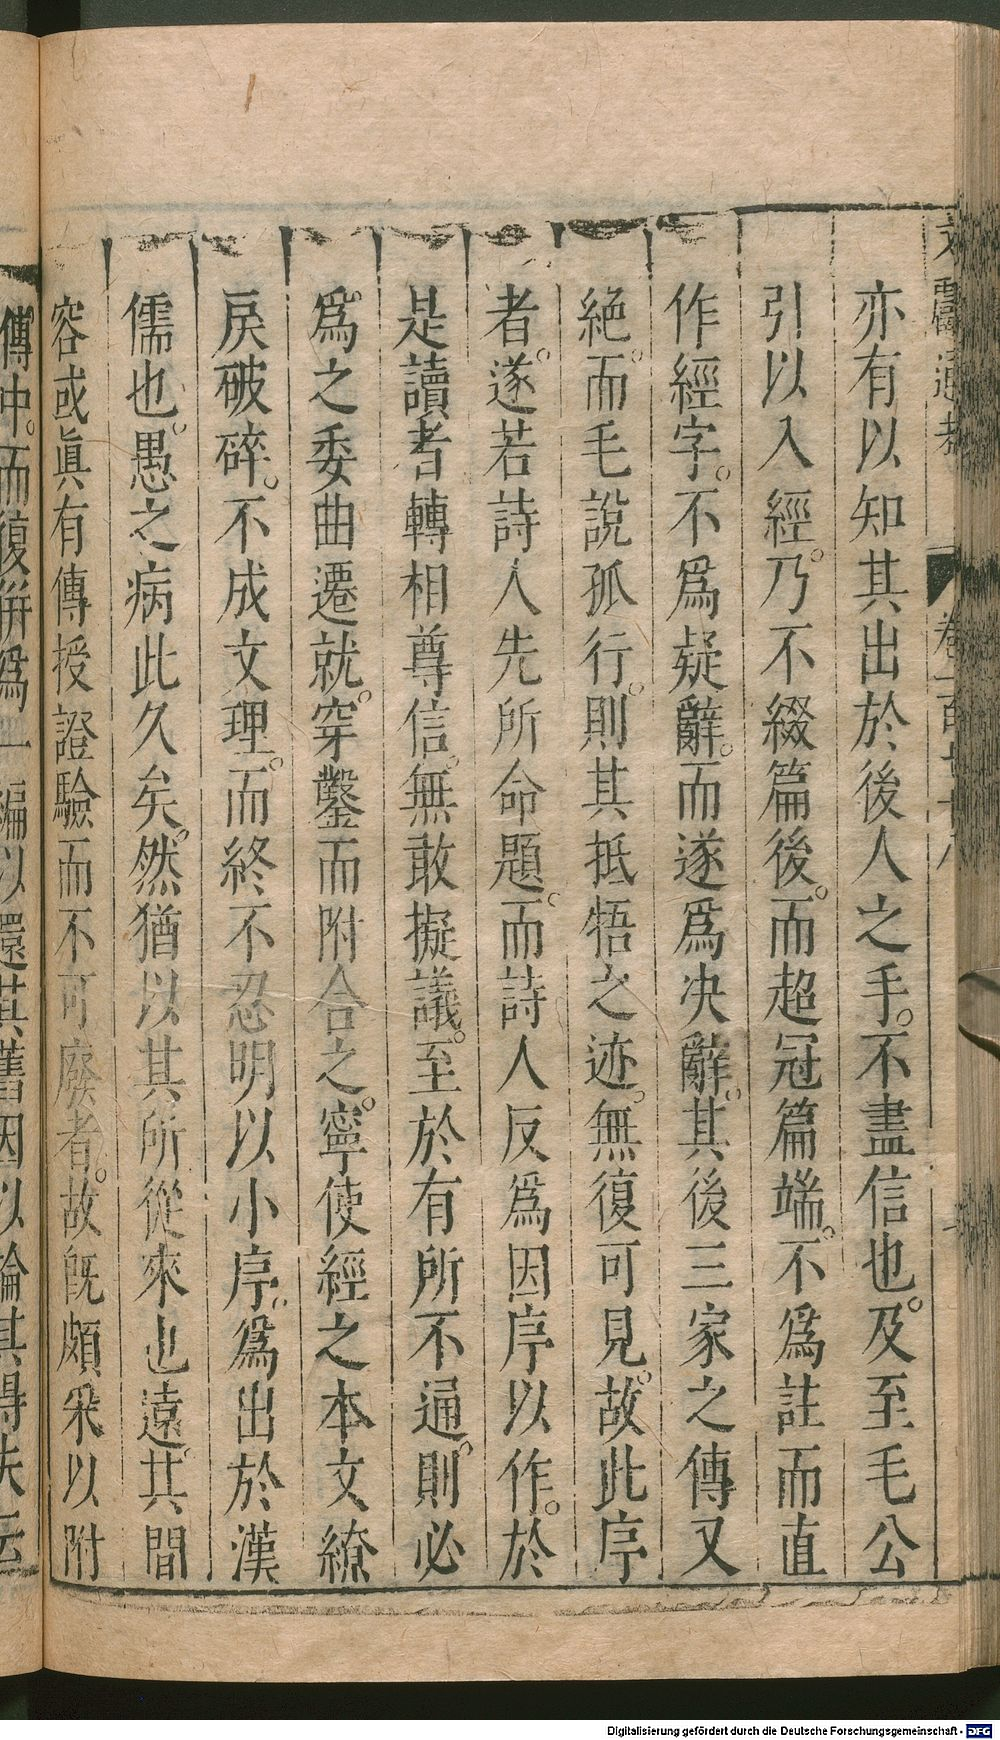 亦有以知其出於後人之手。不盡信也。及至毛公
引以入經。乃不綴篇後。而超冠篇端。不爲註而直
作經字。不爲疑辭。而遂爲决辭。其後三家之傳又
絶。而毛說孤行。則其抵牾之迹。無復可見。故此序
者。遂若詩人先所命題。而詩人反爲因序以作。於
是讀者轉相尊信。無敢擬議。至於有所不通。則必
爲之委曲遷就。穿鑿而附合之。寧使經之本文繚
戾破碎。不成文理。而終不忍明以小序。爲出於漢
儒也。愚之病此久矣。然猶以其所從來也遠。其間
容或眞有傳授證驗而不可廢者。故旣頗采以附
傳中。而復倂爲一編以還其舊因以論其得失云
Digitalisierung gefördert durch die Deutsche Forschungsgemeinschaft - DFG